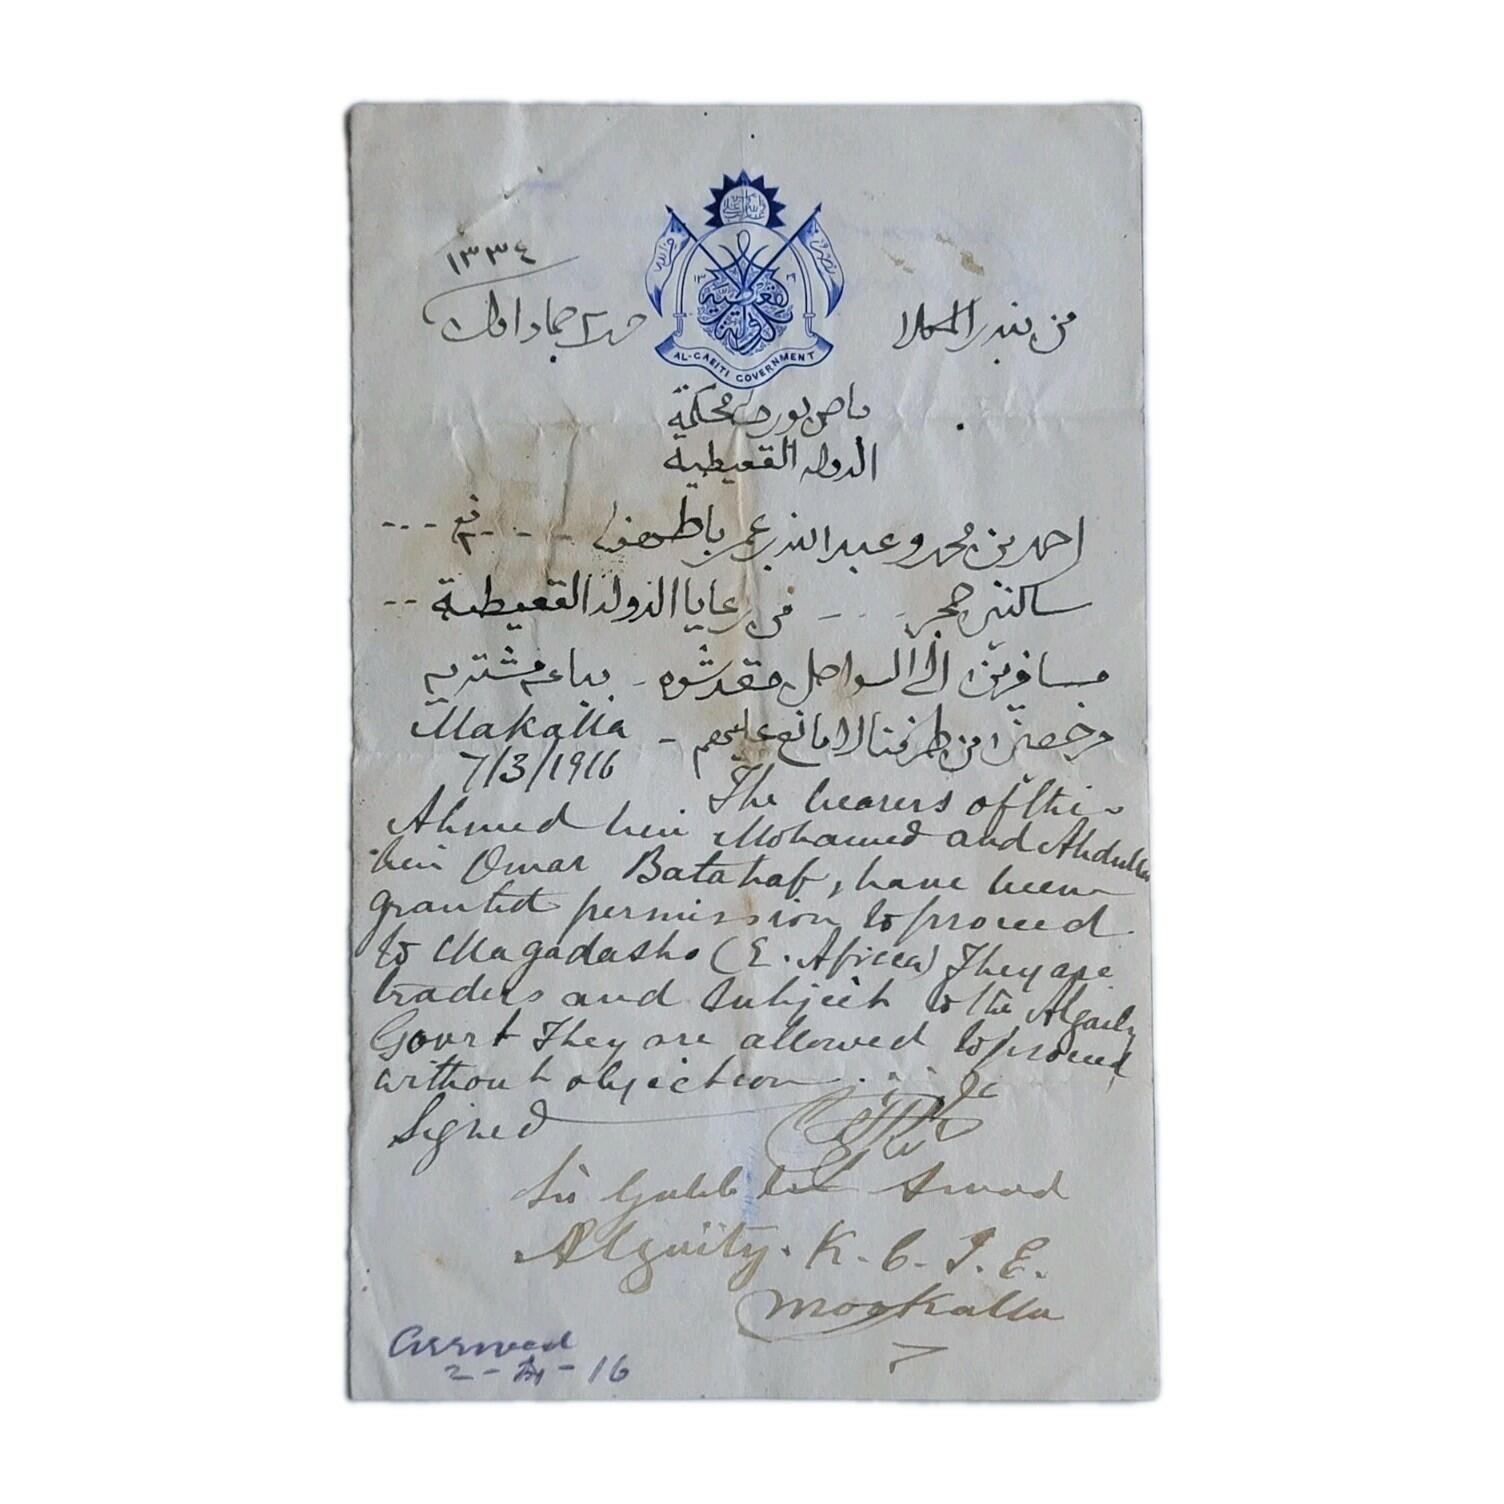 ١٣٣٤
من بندر المكلا
جماد اول
AL-GAEITI GOVERNMENT
باص بورت محكمة
الدوله القعيطية
احمد بن محمد و عبد الله بن عمر باطهف
ساكنين حجر من رعايا الدوله القعيطية
مسافرين الى السواحل مقدشوه
مرخصين من طرفنا لا مانع عليهم
Makalla
7/3/1916
The bearers of this
Ahmed bin Mohamed and Abdulla
bin Omar Batahaf, have been
granted permission to proceed
to Magadasho (E. Africa) They are
traders and subject to the Algaity
Govrt They are allowed to proceed
without objection
Signed
Sir Galib bin Awad
Algaity. K. C. I. E.
Mookalla
Arrived
2 - - 16